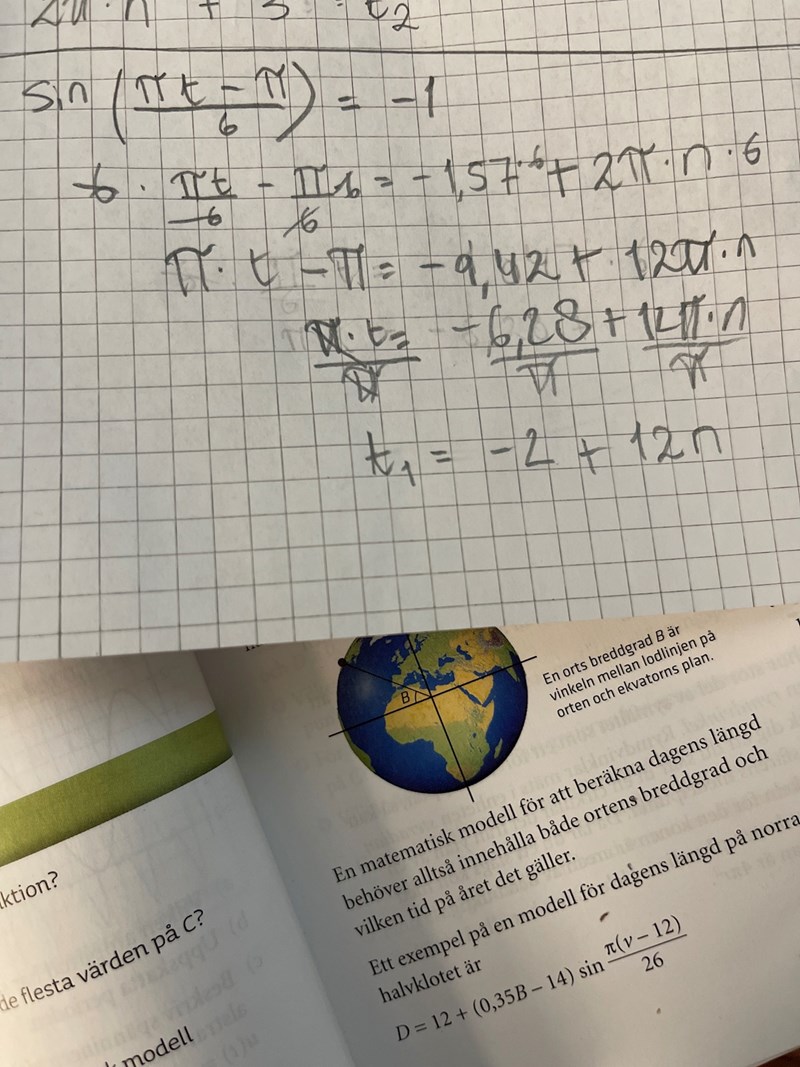 sin ((πt − π)/6) = −1
6 · πt/6 − π/6 · 6 = −1,57 · 6 + 2π · n · 6
π · t − π = −9,42 + 12π · n
π · t/π = −6,28/π + 12π · n/π
t₁ = −2 + 12n
B
En orts breddgrad B är
vinkeln mellan lodlinjen på
orten och ekvatorns plan.
En matematisk modell för att beräkna dagens längd
behöver alltså innehålla både ortens breddgrad och
vilken tid på året det gäller.
Ett exempel på en modell för dagens längd på norra
halvklotet är
D = 12 + (0,35B − 14) sin π(v − 12)/26
ktion?
de flesta värden på C?
modell